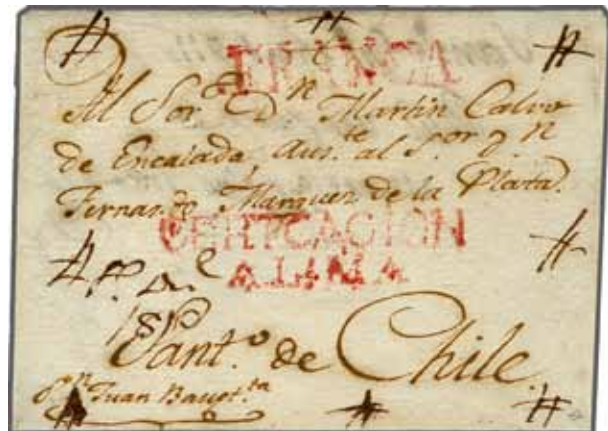 FRANCA
Al Sor. Dn. Martin Calvo
de Encalada, aus.te al S.or D.n
Fernando Marquez de la Plata.
CERTCACION
A LIMA
Sant.o de Chile.
Juan Baut.ta